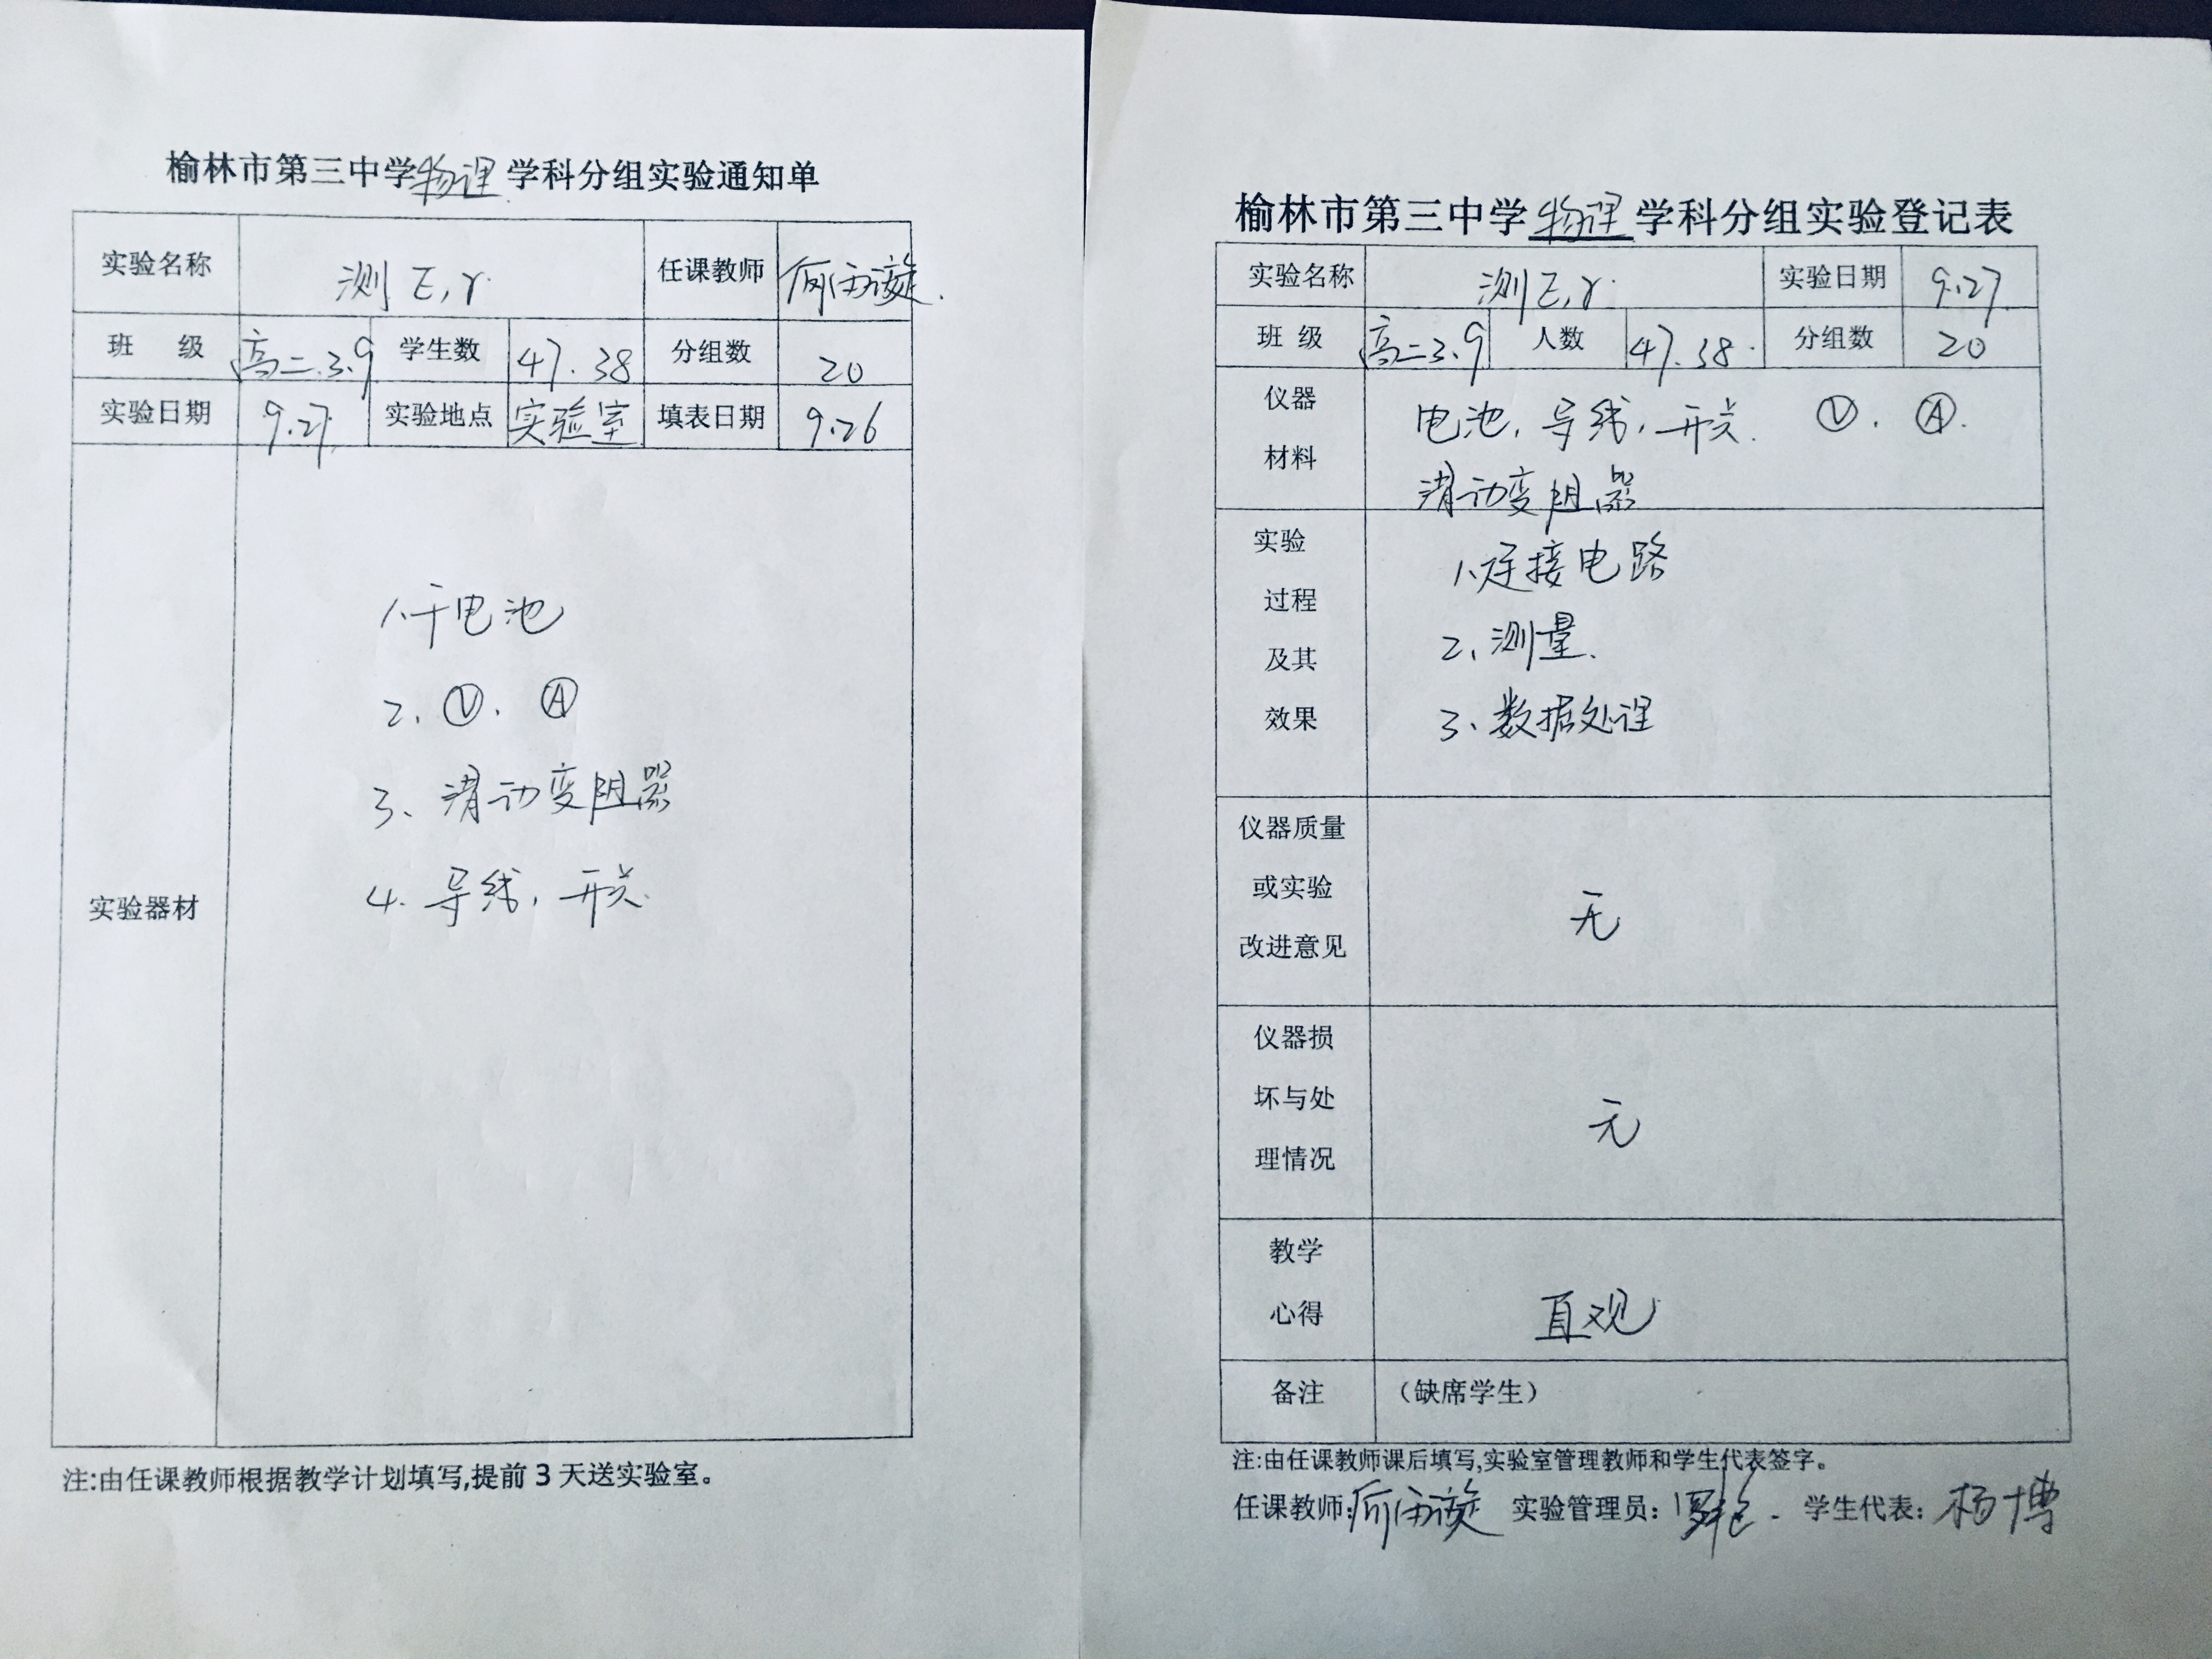 榆林市第三中学物理学科分组实验通知单
实验名称 测 E,r. 任课教师
班 级 高二.3.9 学生数 47.38 分组数 20
实验日期 9.27. 实验地点 实验室 填表日期 9.26
实验器材
1.干电池
2. Ⓥ. Ⓐ
3、滑动变阻器
4. 导线, 开关.
注:由任课教师根据教学计划填写,提前 3 天送实验室。
榆林市第三中学物理学科分组实验登记表
实验名称 测 E,r. 实验日期 9.27
班 级 高二3.9 人数 47.38. 分组数 20
仪器
材料
电池, 导线, 开关. Ⓥ. Ⓐ.
滑动变阻器
实验
过程
及其
效果
1.连接电路
2, 测量.
3、数据处理
仪器质量
或实验
改进意见
无
仪器损
坏与处
理情况
无
教学
心得
直观
备注 (缺席学生)
注:由任课教师课后填写,实验室管理教师和学生代表签字。
任课教师: 实验管理员: 学生代表: 杨博